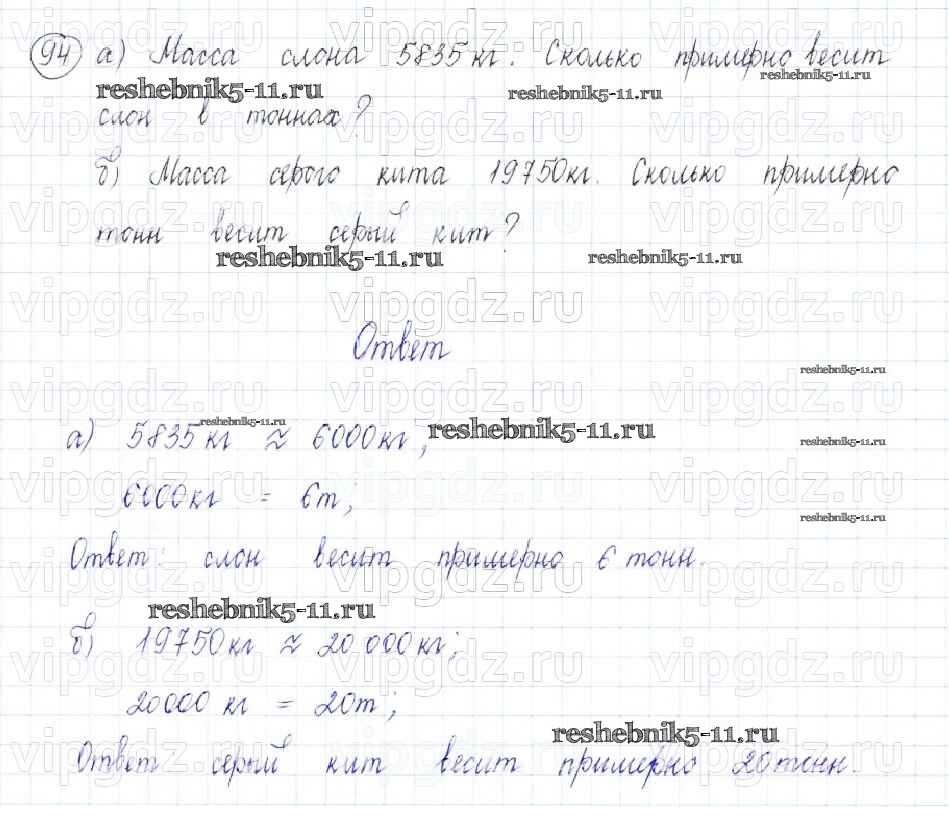 94 а) Масса слона 5835 кг. Сколько примерно весит
слон в тоннах?
б) Масса серого кита 19750 кг. Сколько примерно
тонн весит серый кит?
Ответ
а) 5835 кг ≈ 6000 кг;
6000 кг = 6 т;
Ответ: слон весит примерно 6 тонн.
б) 19750 кг ≈ 20 000 кг;
20000 кг = 20 т;
Ответ серый кит весит примерно 20 тонн.
vipgdz.ru
reshebnik5-11.ru